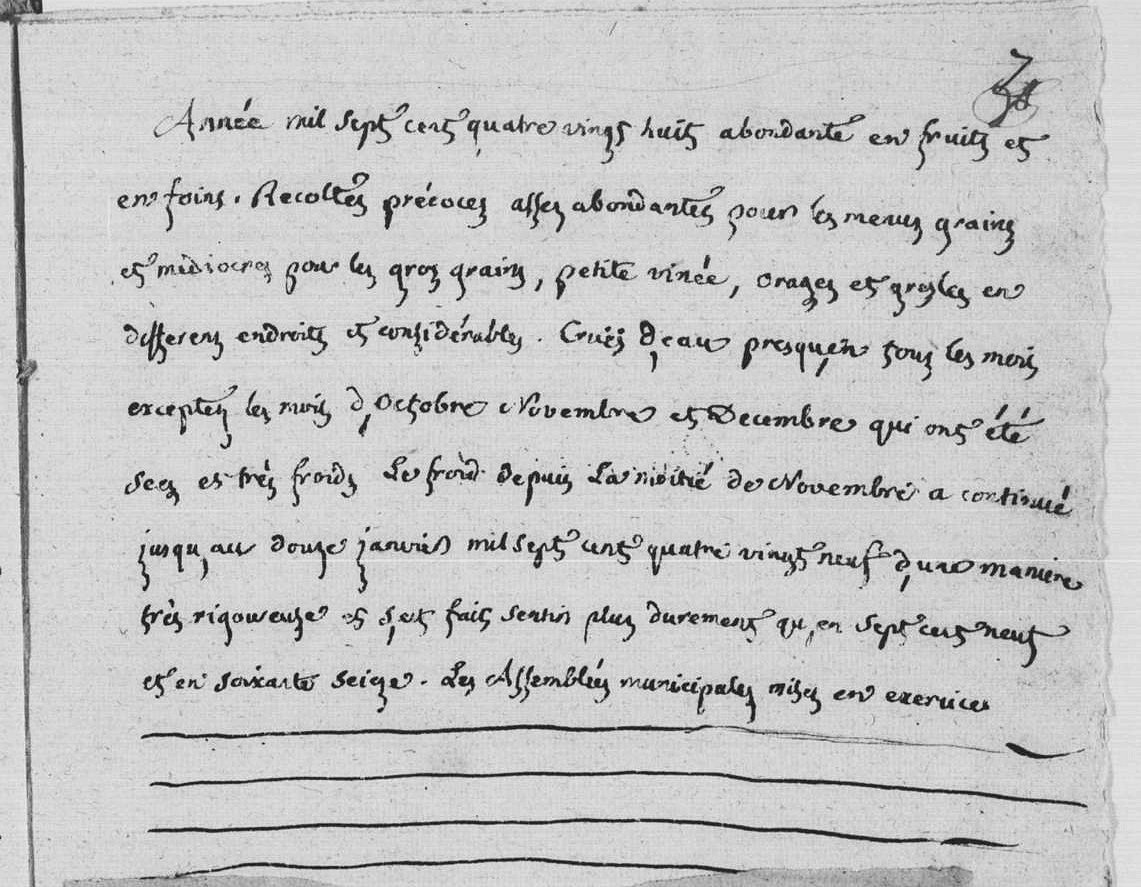 Année mil sept cent quatre vingt huit abondante en fruits et
en foins. Recoltes précoces assez abondantes pour les menus grains
et médiocres pour les gros grains, petite vinée, orages et gresles en
differens endroits et considérables. Cruës d,eau presqu,en tous les mois
exceptes les mois d,Octobre Novembre et Decembre qui ont été
secs et très froids Le froid depuis La moitié de Novembre a continué
jusqu,au douze janvier mil sept cent quatre vingt neuf d,une maniere
très rigoureuse et s,est fait sentir plus durement qu,en sept cent neuf
et en soixante seize. Les Assemblées municipales mises en exercice